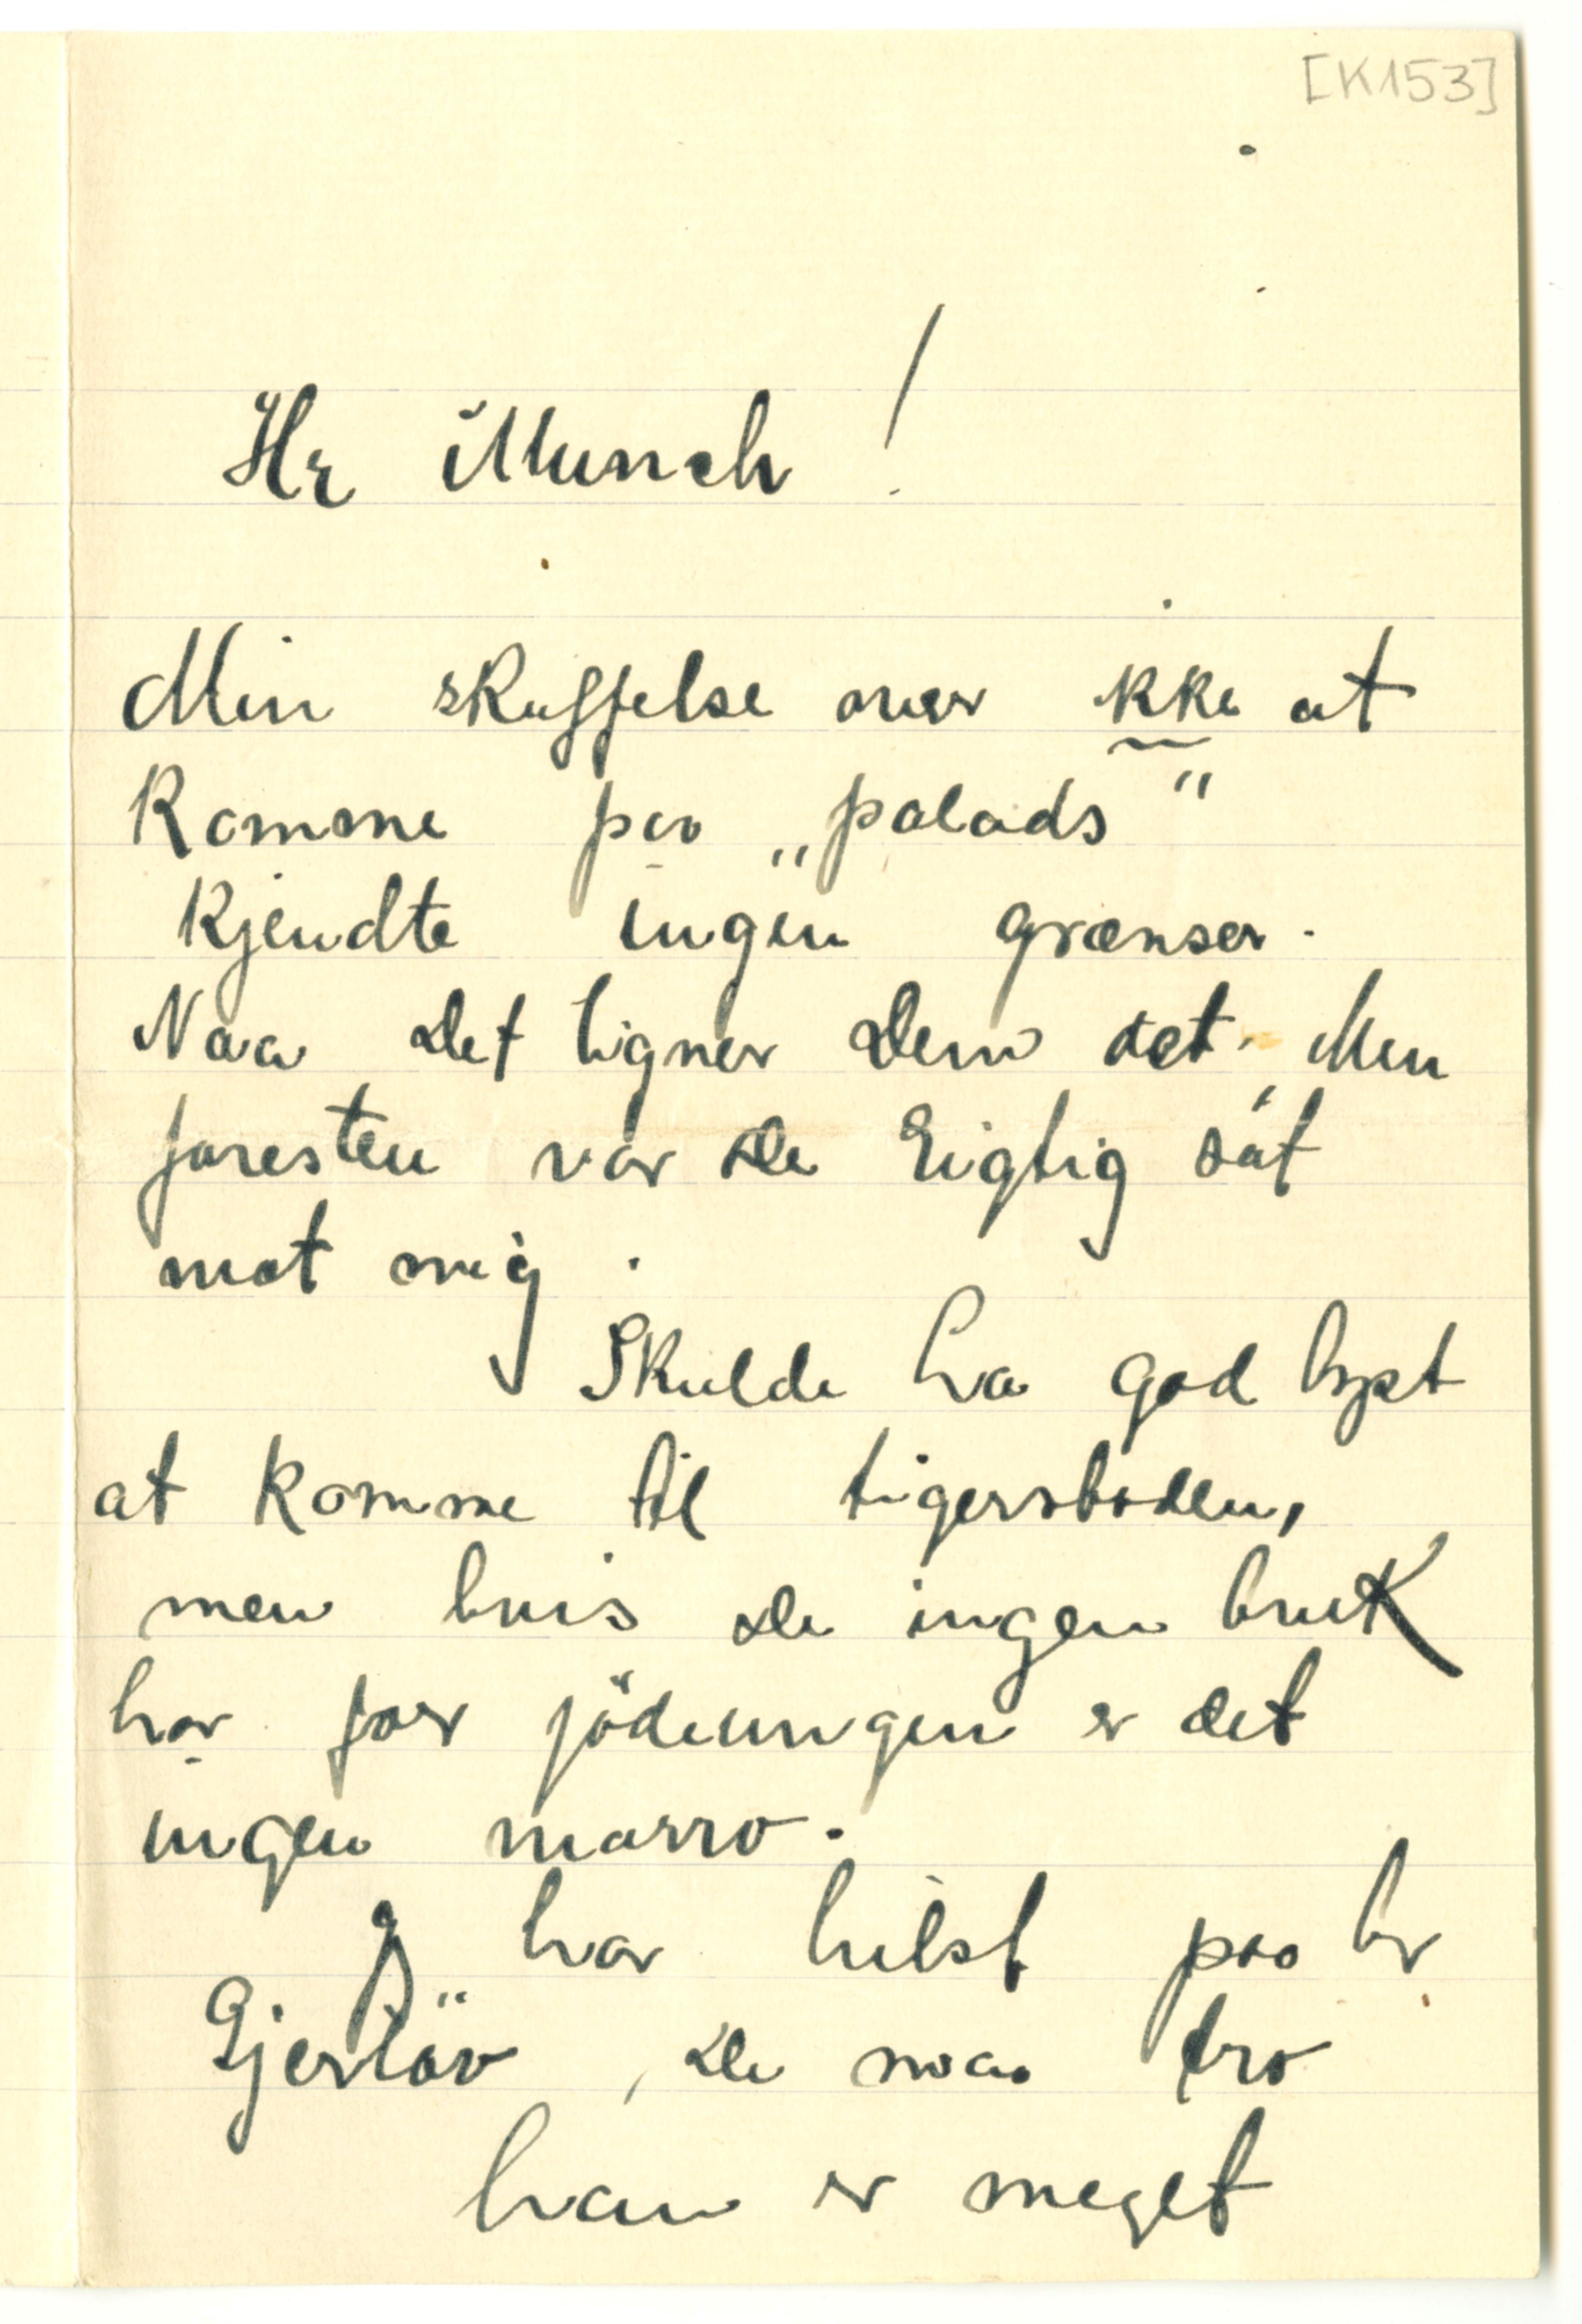 [K153]
Hr Munch!
Min skuffelse over ikke at
komme paa „palads"
kjendte ingen grænser.
Naa det ligner Dem det. Men
foresten var De rigtig söt
mot mig.
Skulde ha god lyst
at komme til tigerstaden,
men hvis De ingen bruk
har for jödeungen er det
ingen marro.
Jg har hilst paa hr
Gjerlöv, De maa tro
han er meget